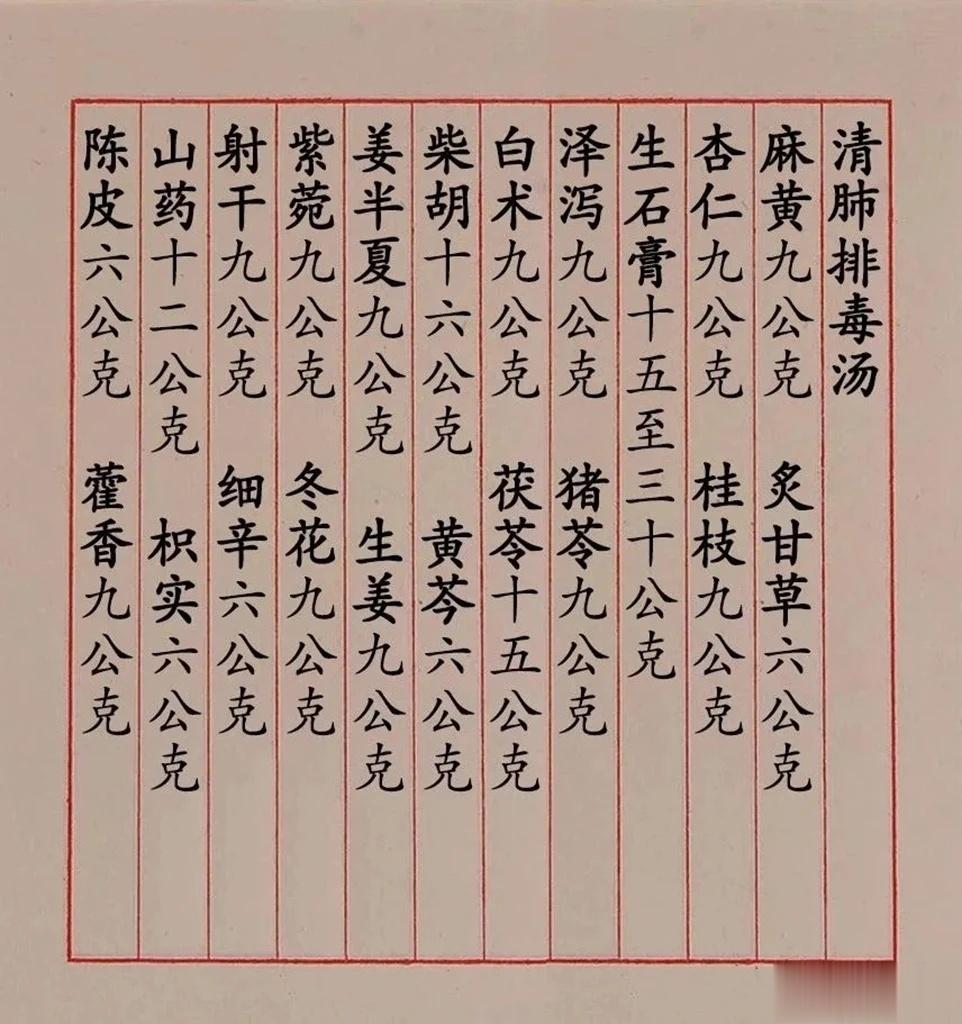 清肺排毒汤
麻黄九公克 炙甘草六公克
杏仁九公克 桂枝九公克
生石膏十五至三十公克
泽泻九公克 猪苓九公克
白术九公克 茯苓十五公克
柴胡十六公克 黄芩六公克
姜半夏九公克 生姜九公克
紫菀九公克 冬花九公克
射干九公克 细辛六公克
山药十二公克 枳实六公克
陈皮六公克 藿香九公克